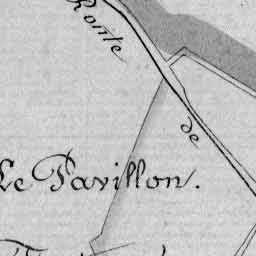 Route
de
Le Pavillon.